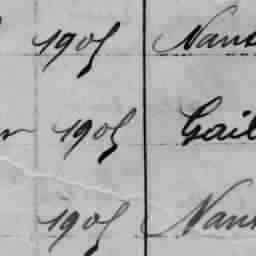 1905 Nan
1905 Gail
1905 Nan